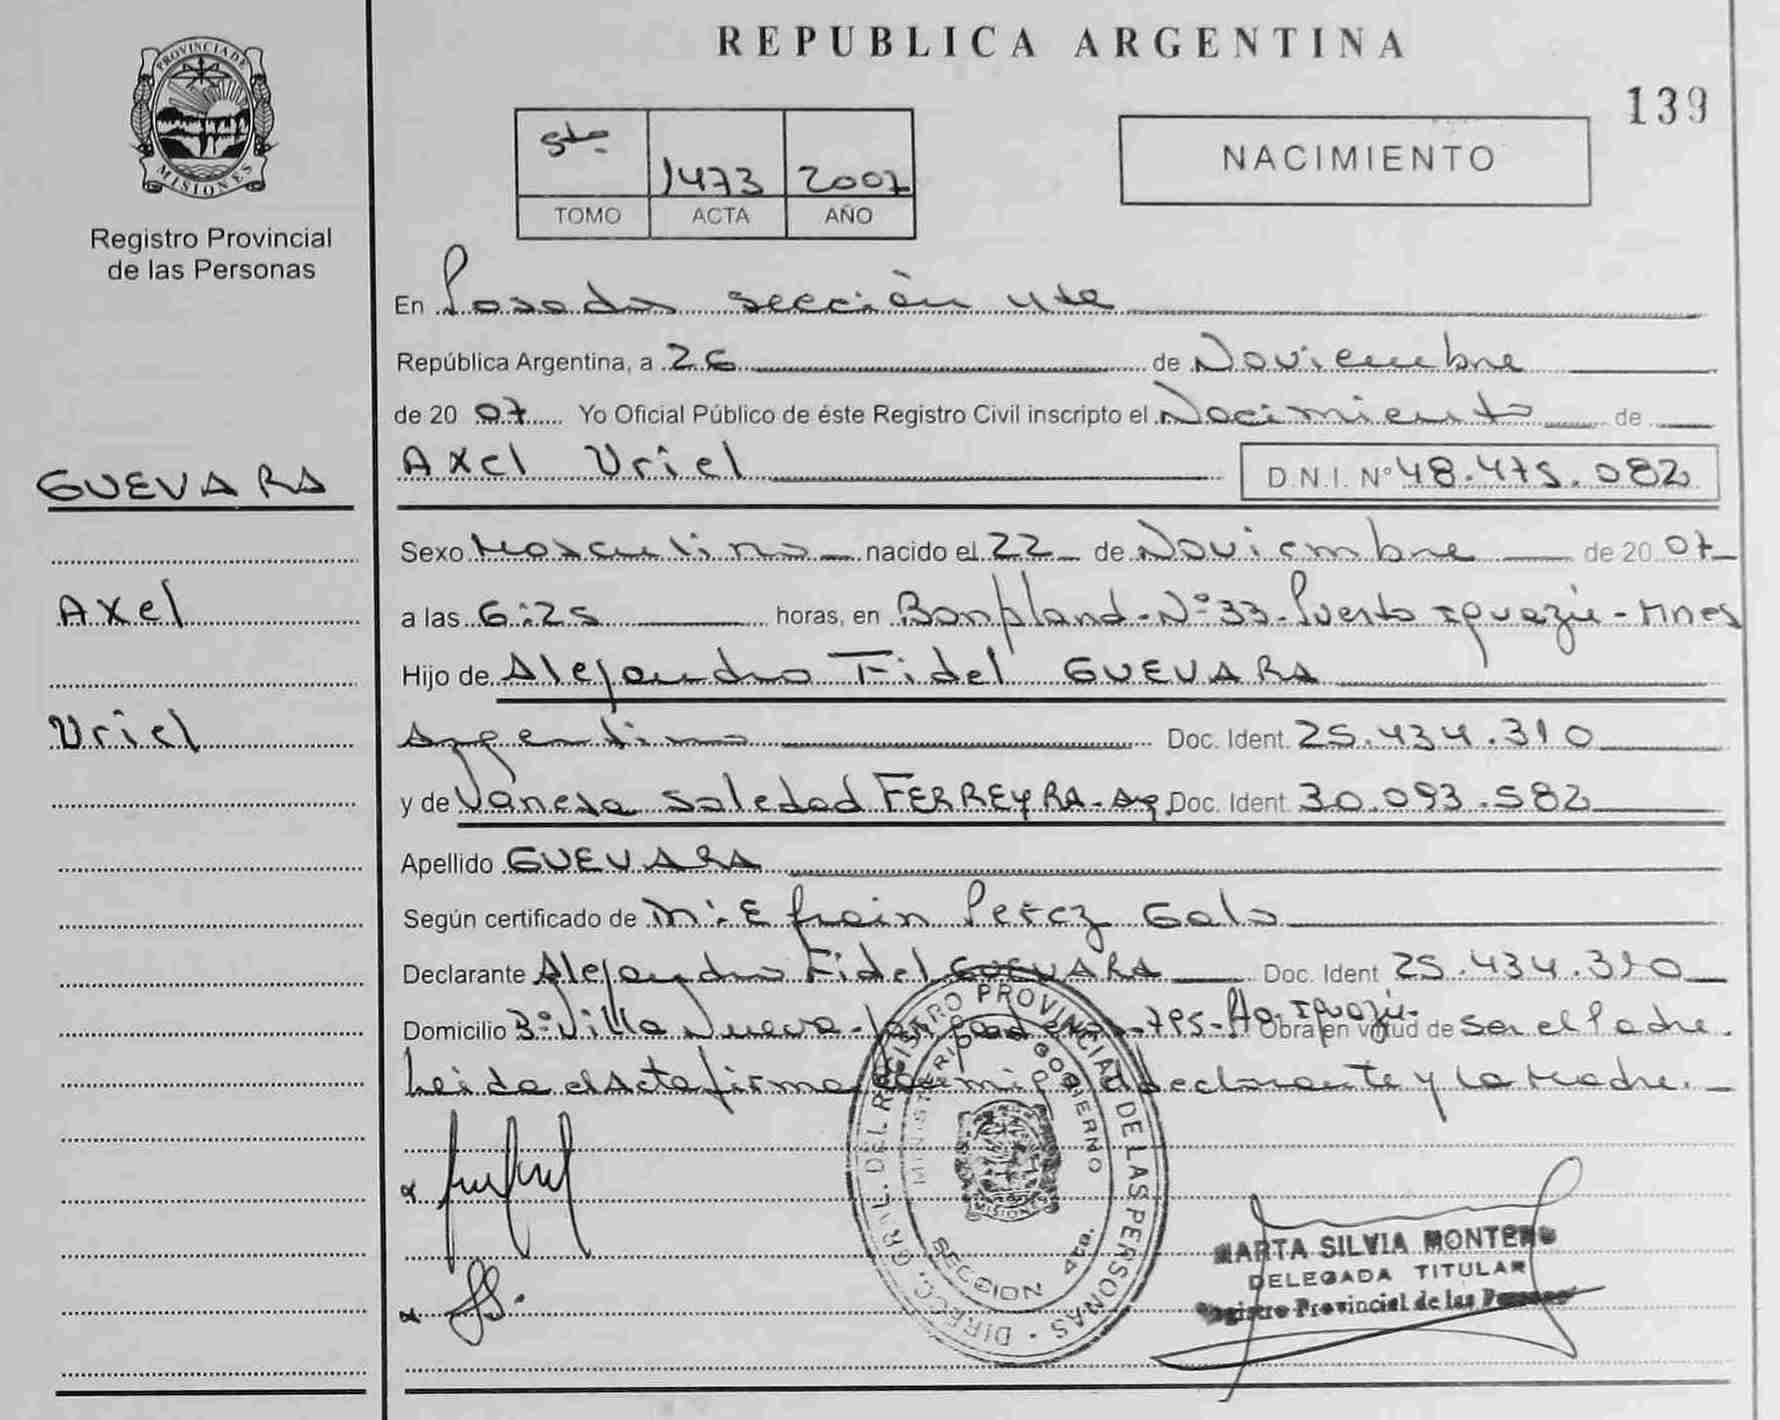 REPUBLICA ARGENTINA
139
PROVINCIA DE
MISIONES
Registro Provincial
de las Personas
5to. 1473 2007
TOMO ACTA AÑO
NACIMIENTO
En Posadas sección 4ta
República Argentina, a 26 de Noviembre
de 20 07 Yo Oficial Público de éste Registro Civil inscripto el Nacimiento de
GUEVARA
Axel Uriel D.N.I. Nº 48.475.082
Sexo Masculino nacido el 22 de Noviembre de 20 07
Axel
a las 6:25 horas, en Bonpland-Nº 33-Puerto Iguazú-Mnes
Hijo de Alejandro Fidel GUEVARA
Uriel
Argentino Doc. Ident. 25.434.310
y de Vanesa Soledad FERREYRA-Arg Doc. Ident 30.093.582
Apellido GUEVARA
Según certificado de Efrain Perez Galo
Declarante Alejandro Fidel GUEVARA Doc. Ident 25.434.310
Domicilio Bº Villa Nueva - 795-Pto. Iguazú- Obra en virtud de ser el Padre.
Leida el Acta firma el Declarante y la Madre.
DIRECC. GRAL. DEL REGISTRO PROVINCIAL DE LAS PERSONAS
MINISTERIO DE GOBIERNO
MISIONES
SECCION 4ta.
MARTA SILVIA MONTERO
DELEGADA TITULAR
Registro Provincial de las Personas